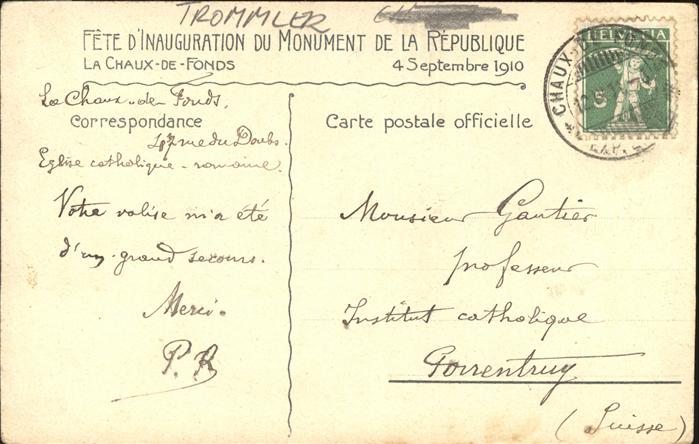 TROMMLER
FÊTE D'INAUGURATION DU MONUMENT DE LA RÉPUBLIQUE
LA CHAUX-DE-FONDS 4 SEPTEMBRE 1910
HELVETIA
5
CHAUX-DE-FONDS
La Chaux-de-Fonds,
Correspondance
rue du Doubs.
Eglise catholique-romaine
Votre valise m'a été
d'un grand secours.
Merci.
P. R
Carte postale officielle
Monsieur Gautier
professeur
Institut catholique
Porrentruy
(Suisse)